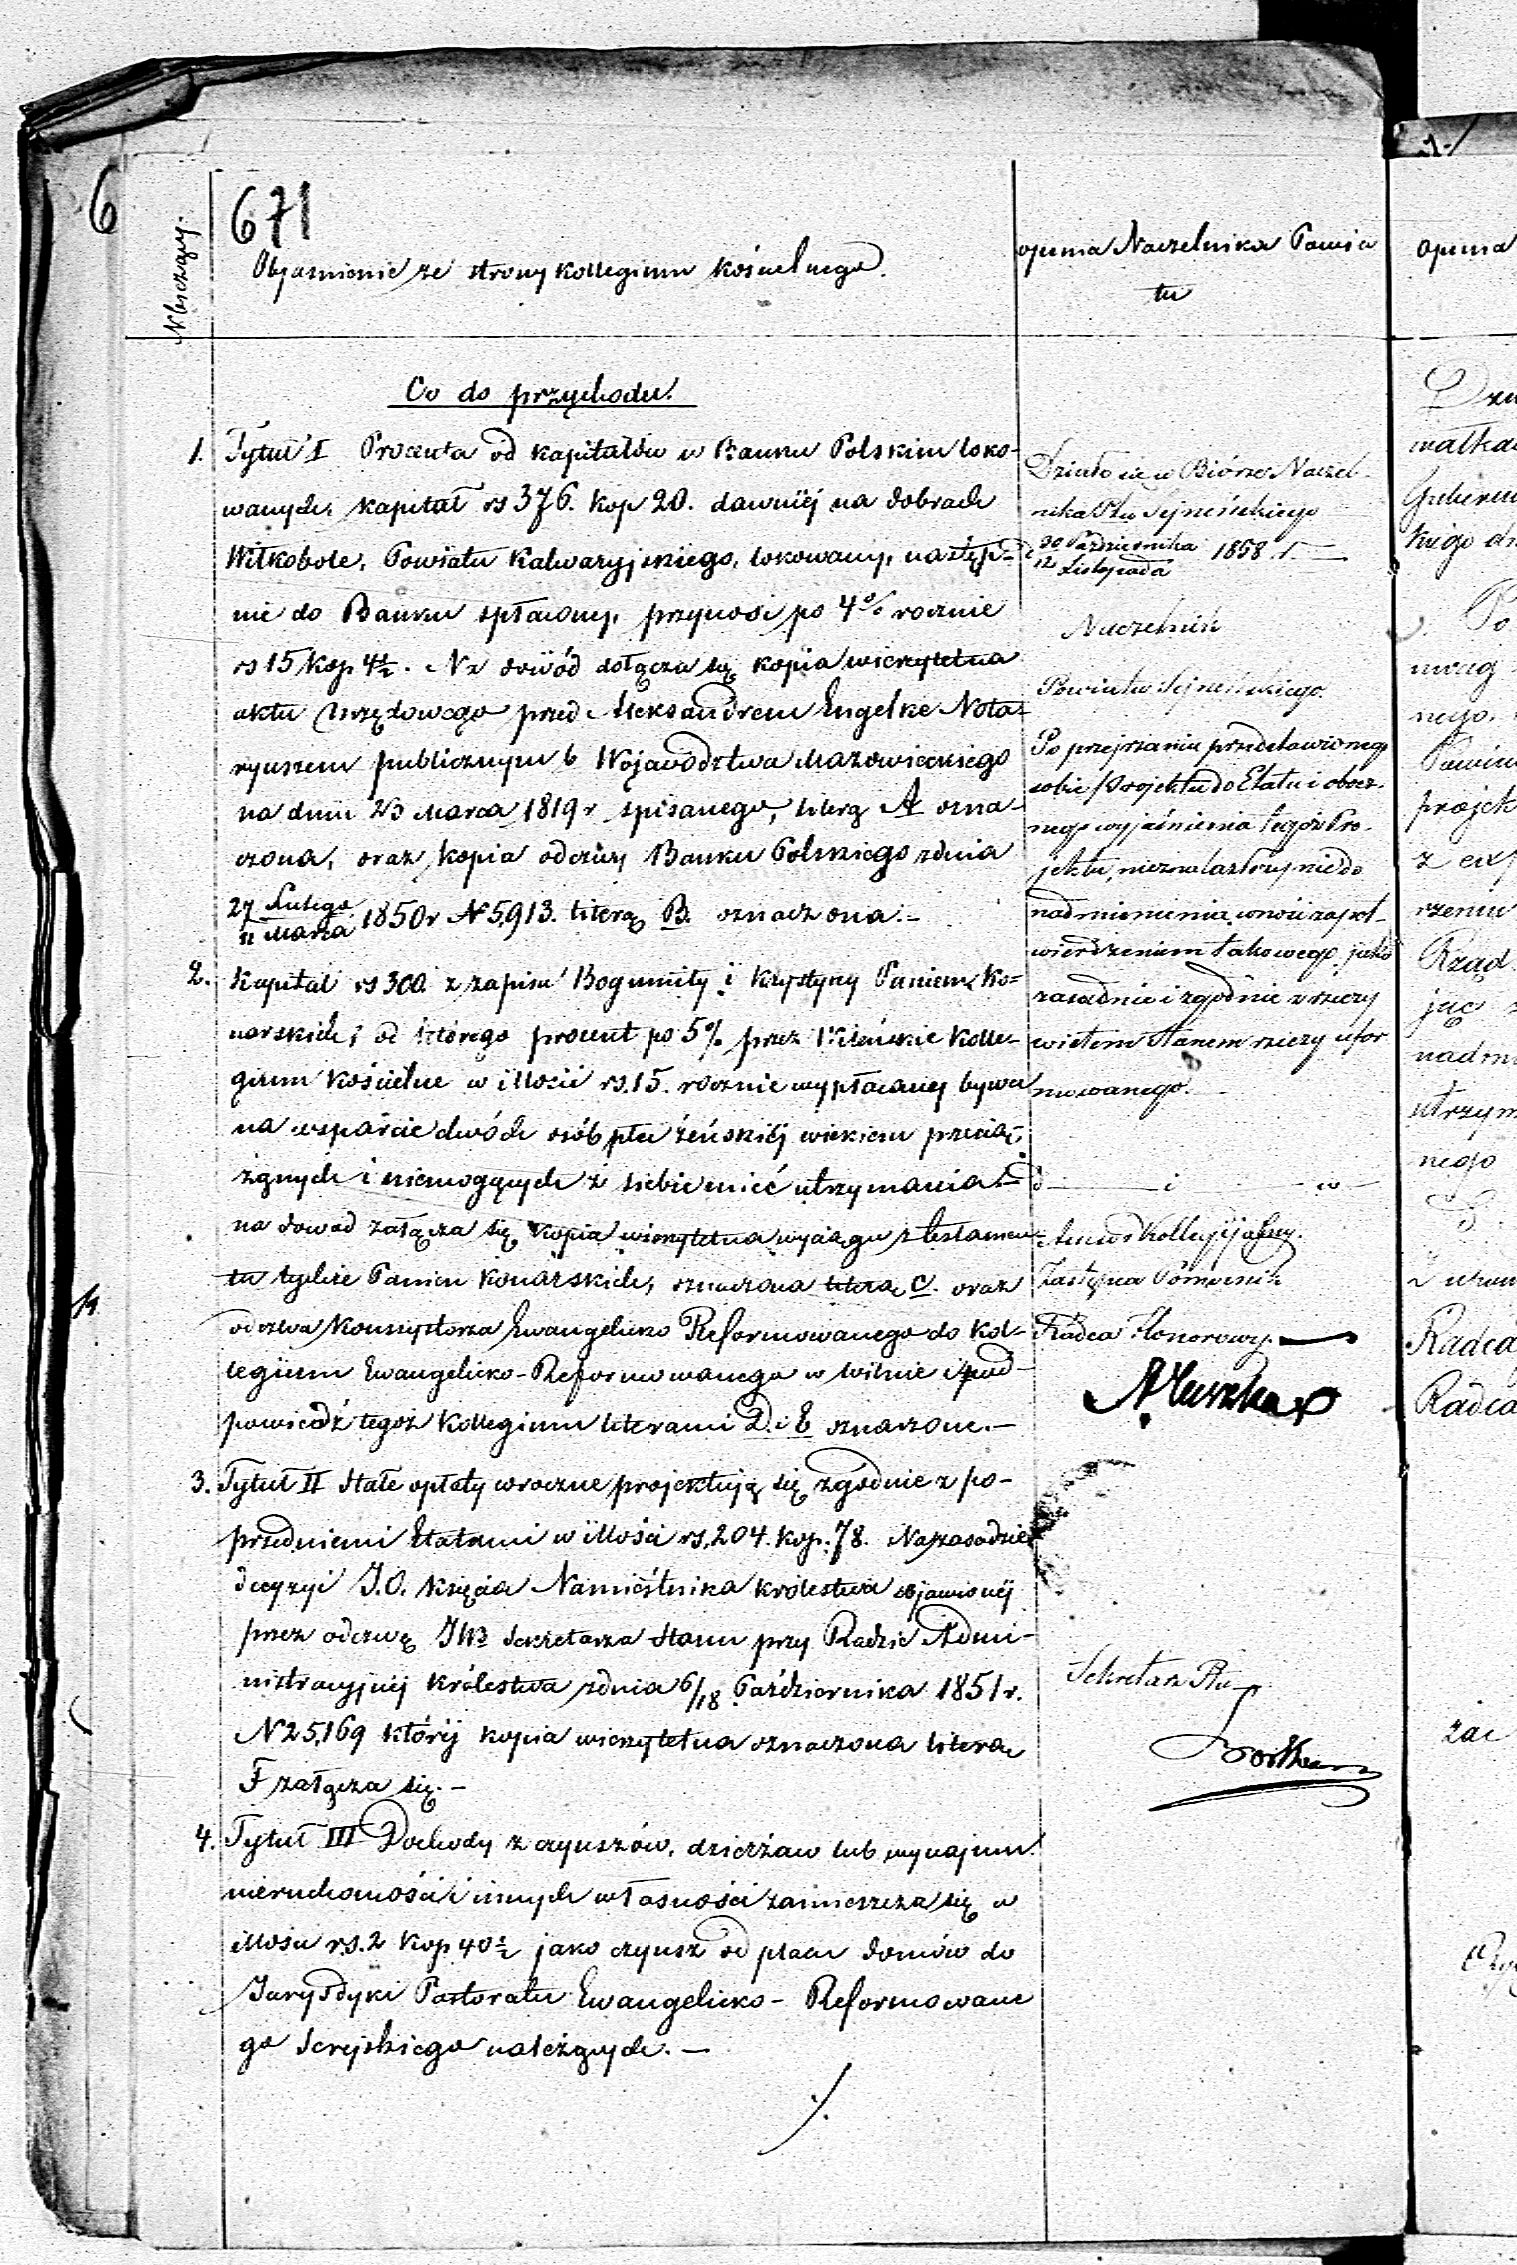 6
671
N bieżący.
Objaśnienie ze strony Kollegium Kościelnego.
opinia Naczelnika Powia
tu
Co do przychodu.
1. Tytuł I Procenta od kapitałów w Banku Polskim loko-
wanych, kapitał rs 376. kop 20. dawniéj na dobrach
Wiłkobole, Powiatu Kalwaryjskiego, lokowany, następ-
nie do Banku spłacony, przynosi po 4% rocznie
rs 15 kop 4½. Na dowód dołącza się kopia wierzytelna
aktu urzędowego przed Aleksandrem Engelke Nota-
ryuszem publicznym b Województwa Mazowieckiego
na dniu 23 Marca 1819 r spisanego, literą A ozna-
czona, oraz kopia odezwy Banku Polskiego zdnia
27 Lutego
11 Marca 1850 r N 5,913. literą B. oznaczona.-
2. Kapitał rs 300. z zapisu Bogumiły i Krystyny Panien Ko-
narskich, od którego procent po 5% przez Wileńskie Kolle-
gium Kościelne w illości rs. 15. rocznie wypłacany bywa
na wsparcie dwóch osób płci żeńskiéj wiekiem przecią-
żonych i niemogących z siebie mieć utrzymania.-
na dowód załącza się kopia wierzytelna wyciągu z testamen-
tu tychże Panien Konarskich, oznaczona literą C. oraz
odezwa Konsystorza Ewangelicko Reformowanego do Kol-
legium Ewangelicko-Reformowanego w Wilnie i
powiedź tegoż Kollegium literami D. i E oznaczone.-
3. Tytuł II Stałe opłaty wroczne projektują się zgodnie z po-
przedniemi Etatami w illości rs. 204. kop. 78. Na zasadzie
decyzyi J.O. Księcia Namiestnika Królestwa objawionéj
przez odezwę JW Sekretarza Stanu przy Radzie Admi-
nistracyjnéj Królestwa zdnia 6/18 Października 1851 r.
N 25,169 któréj kopia wierzytelna oznaczona literą
F załącza się.-
4. Tytuł III Dochody z czynszów, dzierżaw lub wynajmu
nieruchomości i innych własności zamieszcza się w
illości rs. 2 kop 40½ jako czynsz od placu domów do
Jurysdyki Pastoratu Ewangelicko-Reformowane
go Serejskiego należących.-
./.
Działo się w Biórze Naczel-
nika Ptu Sejneńskiego
d 30 Października
12 Listopada 1858 r
Naczelnik
Powiatu Sejneńskiego.
Po przejrzeniu przedstawionego
sobie Projektu do Etatu i obocz-
nego wyjaśnienia tegoż Pro-
jektu, nieznalazłszy nic do
nadmienienia, wnosi za pot-
wierdzeniem takowego, jako
zasadnie i zgodnie z rzeczy
wistem stanem rzeczy ufor
mowanego.
Assesor Kollegijalny.
Zastępca Pomocnik
Radca Honorowy.
Sekretarz Ptu
opinia
Gubern
projek
z
rzeniu
Rząd
jąc
utrzym
nego
Radca
Radca